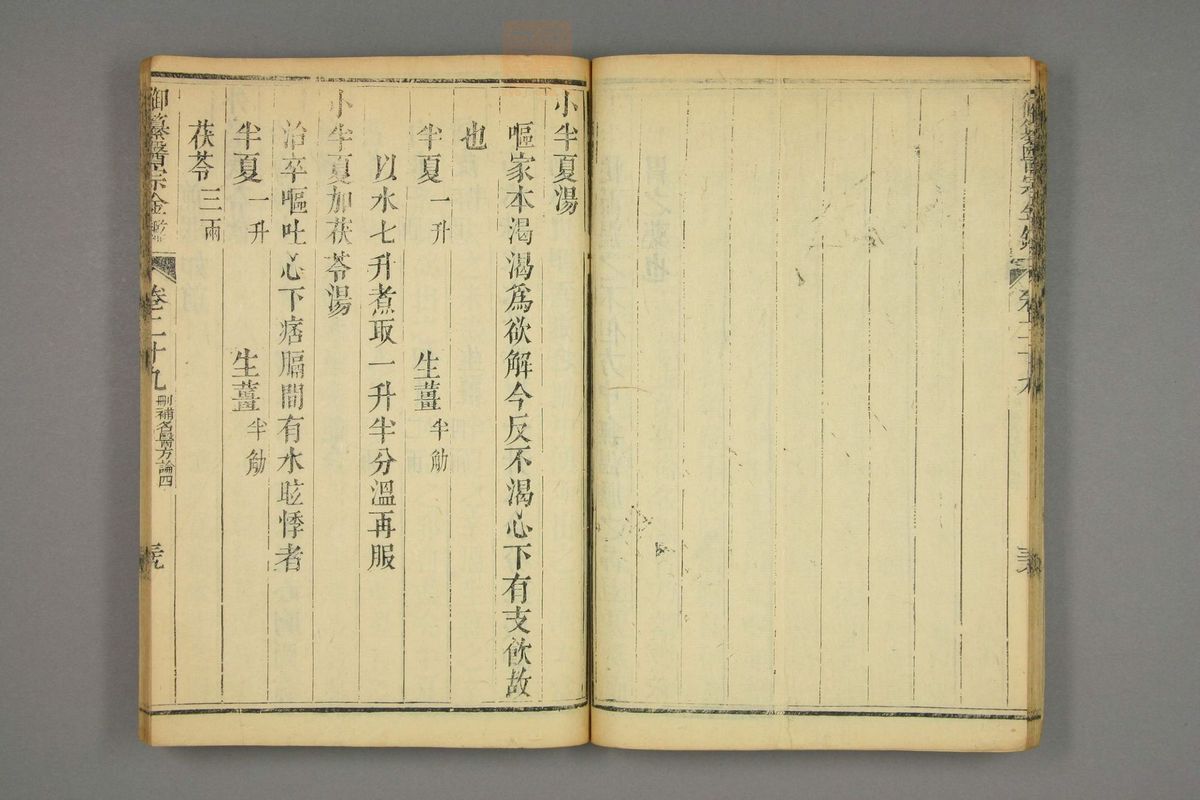 小半夏湯
嘔家本渴渴爲欲解今反不渴心下有支飮故
也
半夏一升 生薑半觔
以水七升煮取一升半分溫再服
小半夏加茯苓湯
治卒嘔吐心下痞膈間有水眩悸者
半夏一升 生薑半觔
茯苓三兩
御纂醫宗金鑑 卷二十九 刪補名醫方論四